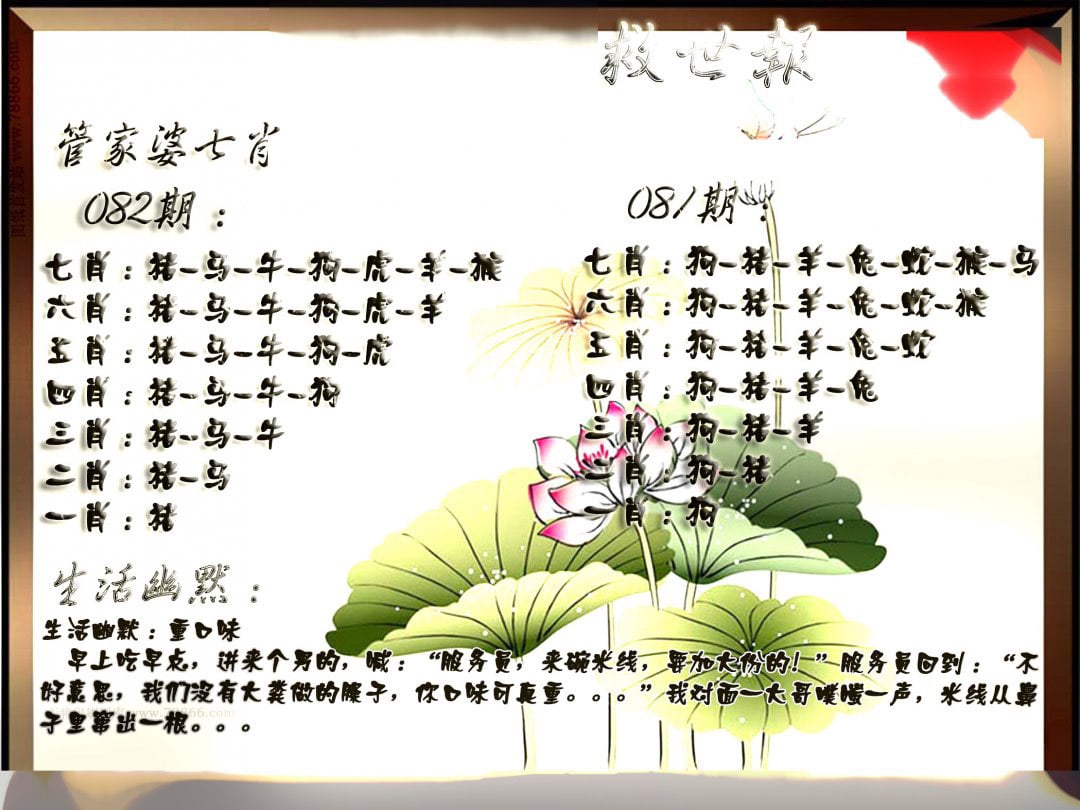 救世報
管家婆七肖
082期：
七肖：猪-马-牛-狗-虎-羊-猴
六肖：猪-马-牛-狗-虎-羊
五肖：猪-马-牛-狗-虎
四肖：猪-马-牛-狗
三肖：猪-马-牛
二肖：猪-马
一肖：猪
081期：
七肖：狗-猪-羊-兔-蛇-猴-马
六肖：狗-猪-羊-兔-蛇-猴
五肖：狗-猪-羊-兔-蛇
四肖：狗-猪-羊-兔
三肖：狗-猪-羊
二肖：狗-猪
一肖：狗
生活幽默：
生活幽默：重口味
早上吃早点，进来个男的，喊：“服务员，来碗米线，要加大份的！”服务员回到：“不
好意思，我们没有大粪做的臊子，你口味可真重。。。”我对面一大哥噗嗤一声，米线从鼻
子里窜出一根。。。
www.78866.com
www.78866.com